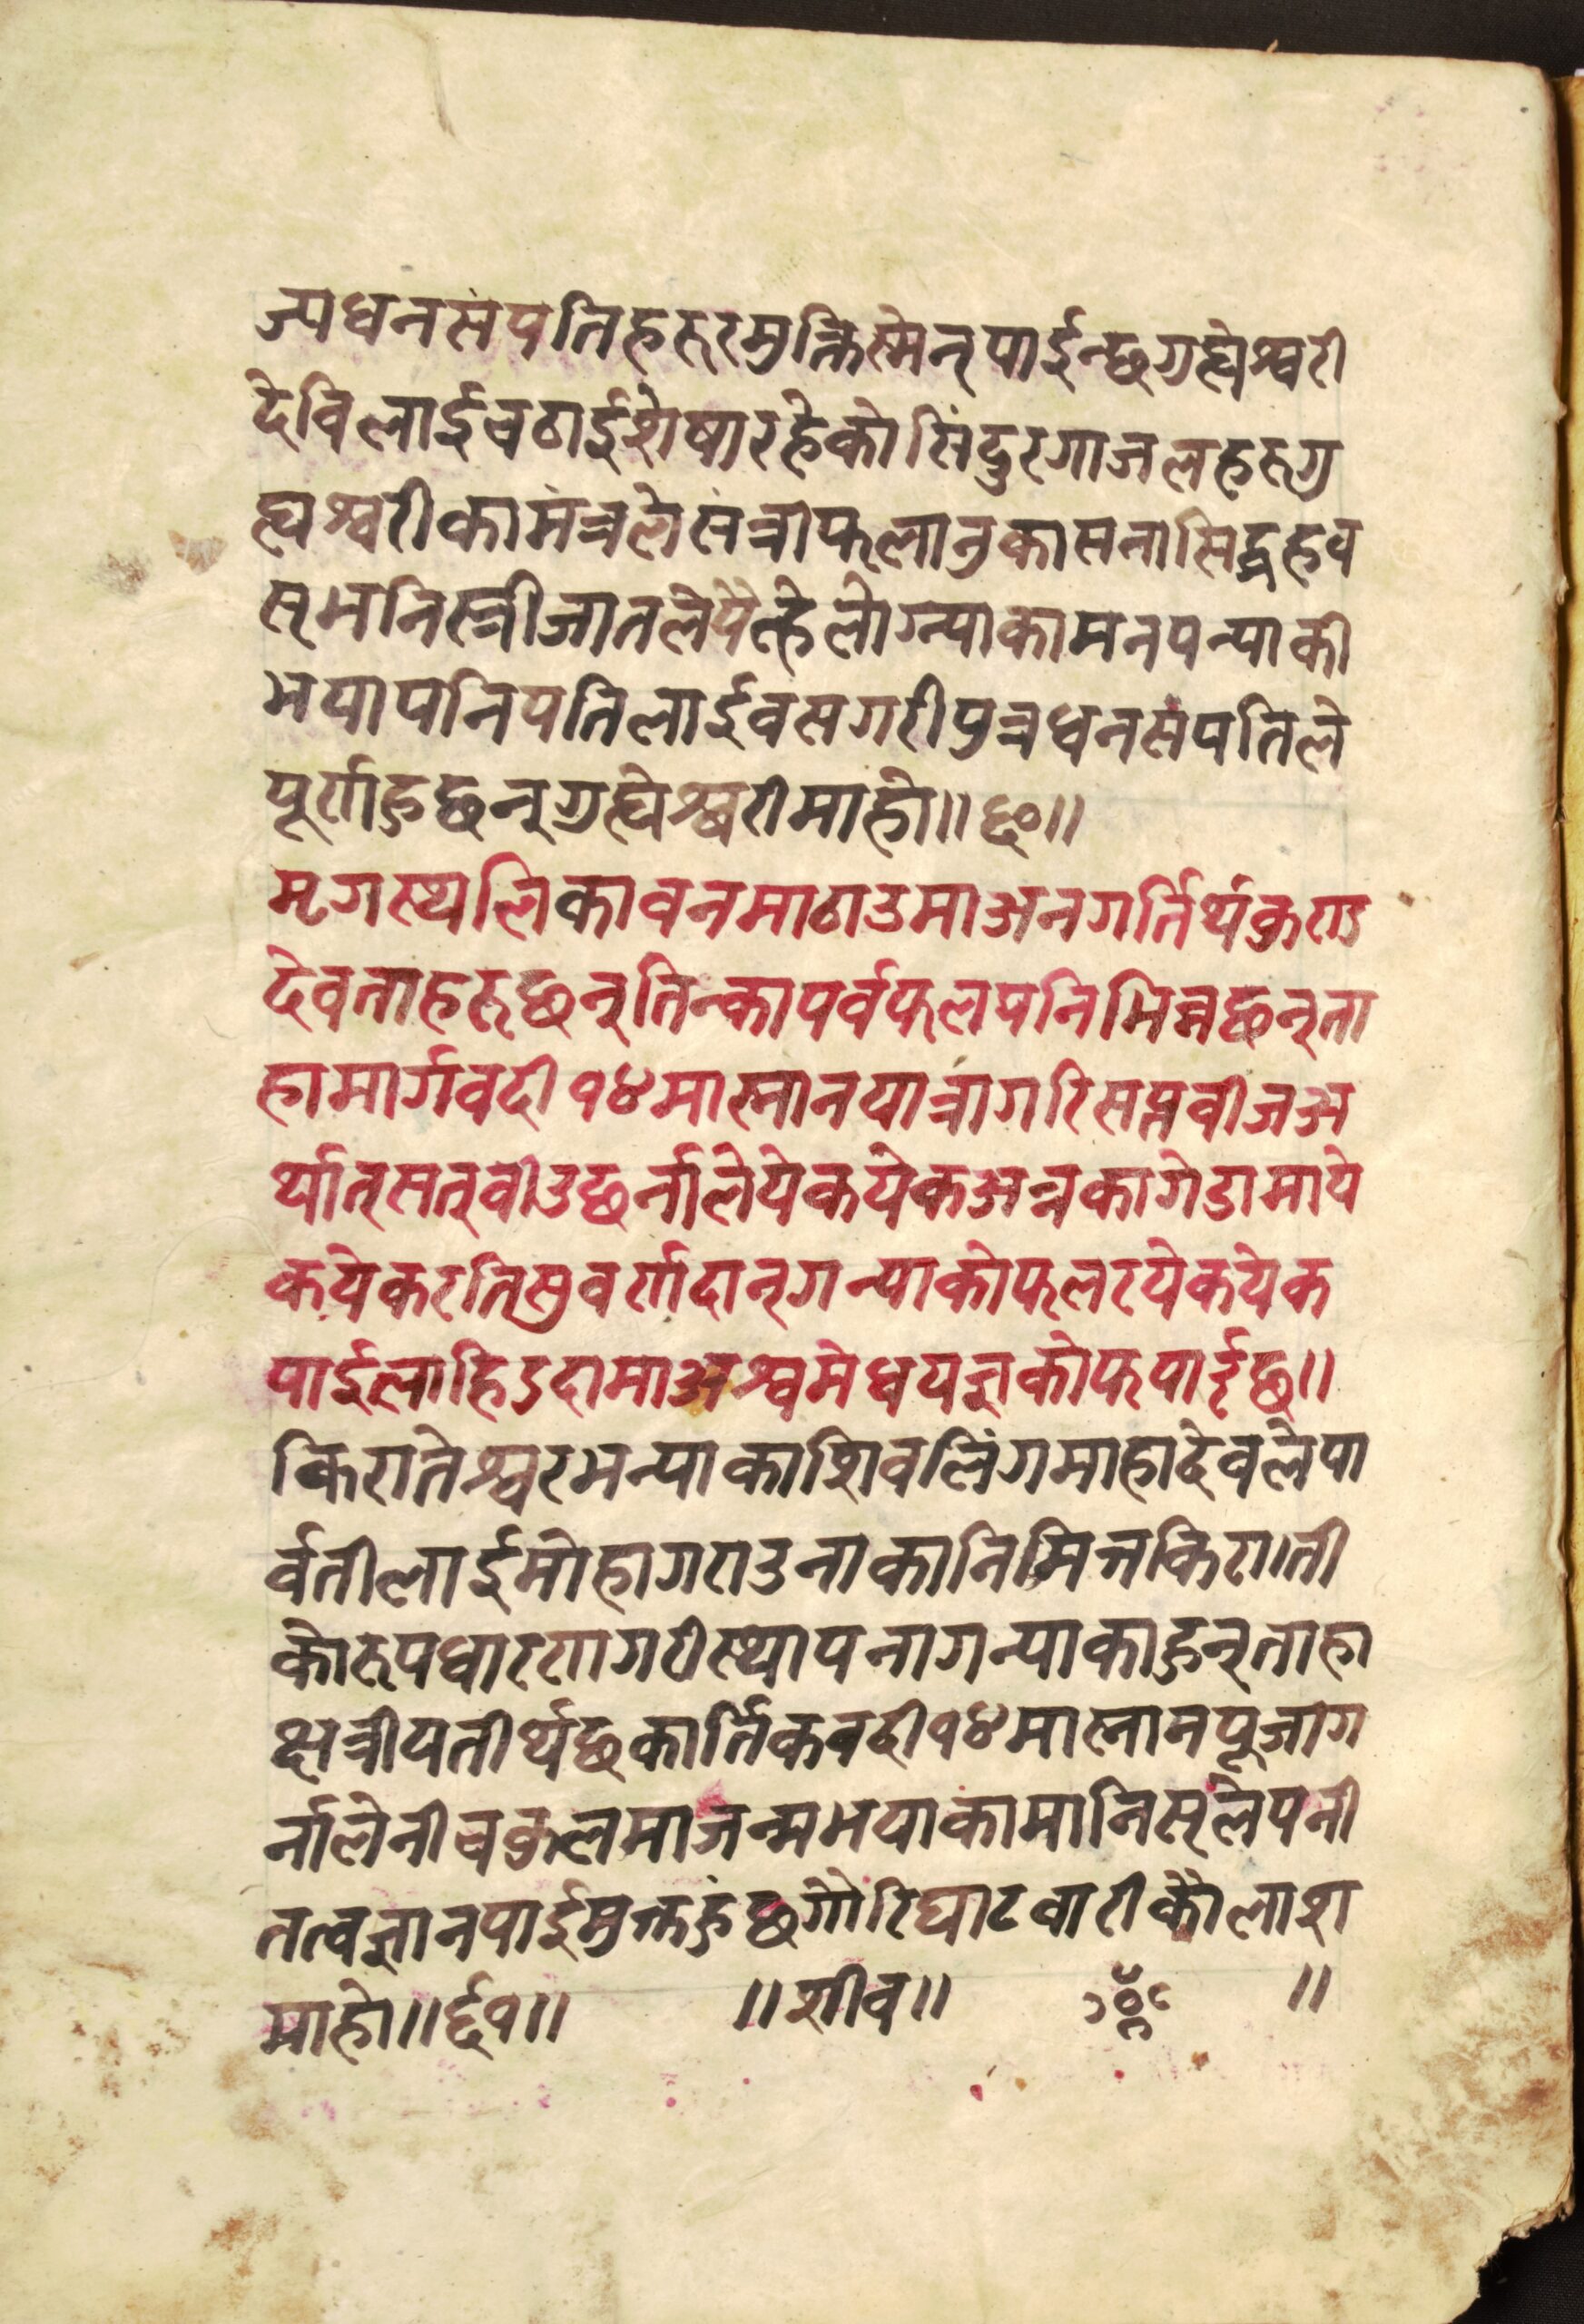 ज्यधनसंपतिहरुरमुक्तिस्मेन्पाईन्छगुह्येश्वरी
देविलाईचठाईशेषारहेकोसिंदुरगाजलहरुगु
ह्यश्वरीकामंत्रलेसंत्रीफलानुकासनासिद्धहव
स्भनिस्त्रीजातलेपैल्हेलोग्न्याकामनपन्याकी
भयापनिपतिलाईवसगरीपुत्रधनसंपतिले
पूर्णहुछन्गुह्येश्वरीमाहो॥६०॥
मृगस्थलिकावनमाठाउमाअनगर्तिर्थकुण्ड
देवताहरुछन्तिन्कापर्वफलपनिभिन्नछन्ता
हामार्गवदी१४मास्नानयात्रागरिसप्तवीजअ
र्थात्सत्वीउछर्नालेयेकयेकअन्नकागेडामाये
कयेकरतिसुवर्णदान्गन्याकोफलरयेकयेक
पाईलाहिडदामाअश्वमेधयज्ञकोफपाईछ॥
किरातेश्वरभन्याकाशिवलिंगमाहादेवलेपा
र्वतीलाईमोहागराउनाकानिमित्तकिराती
कोरुपधारणगरीस्थापनागन्याकाहुन्ताहा
क्षत्रीयतीर्थछकार्तिकवदी१४मास्नानपूजाग
र्नालेनीचकुलमाजन्मभयाकामानिस्लेपनी
तत्वज्ञानपाईमुक्तहुंछगौरिघाटवारीकैलाश
माहो॥६१॥ ॥शीव॥ ॥